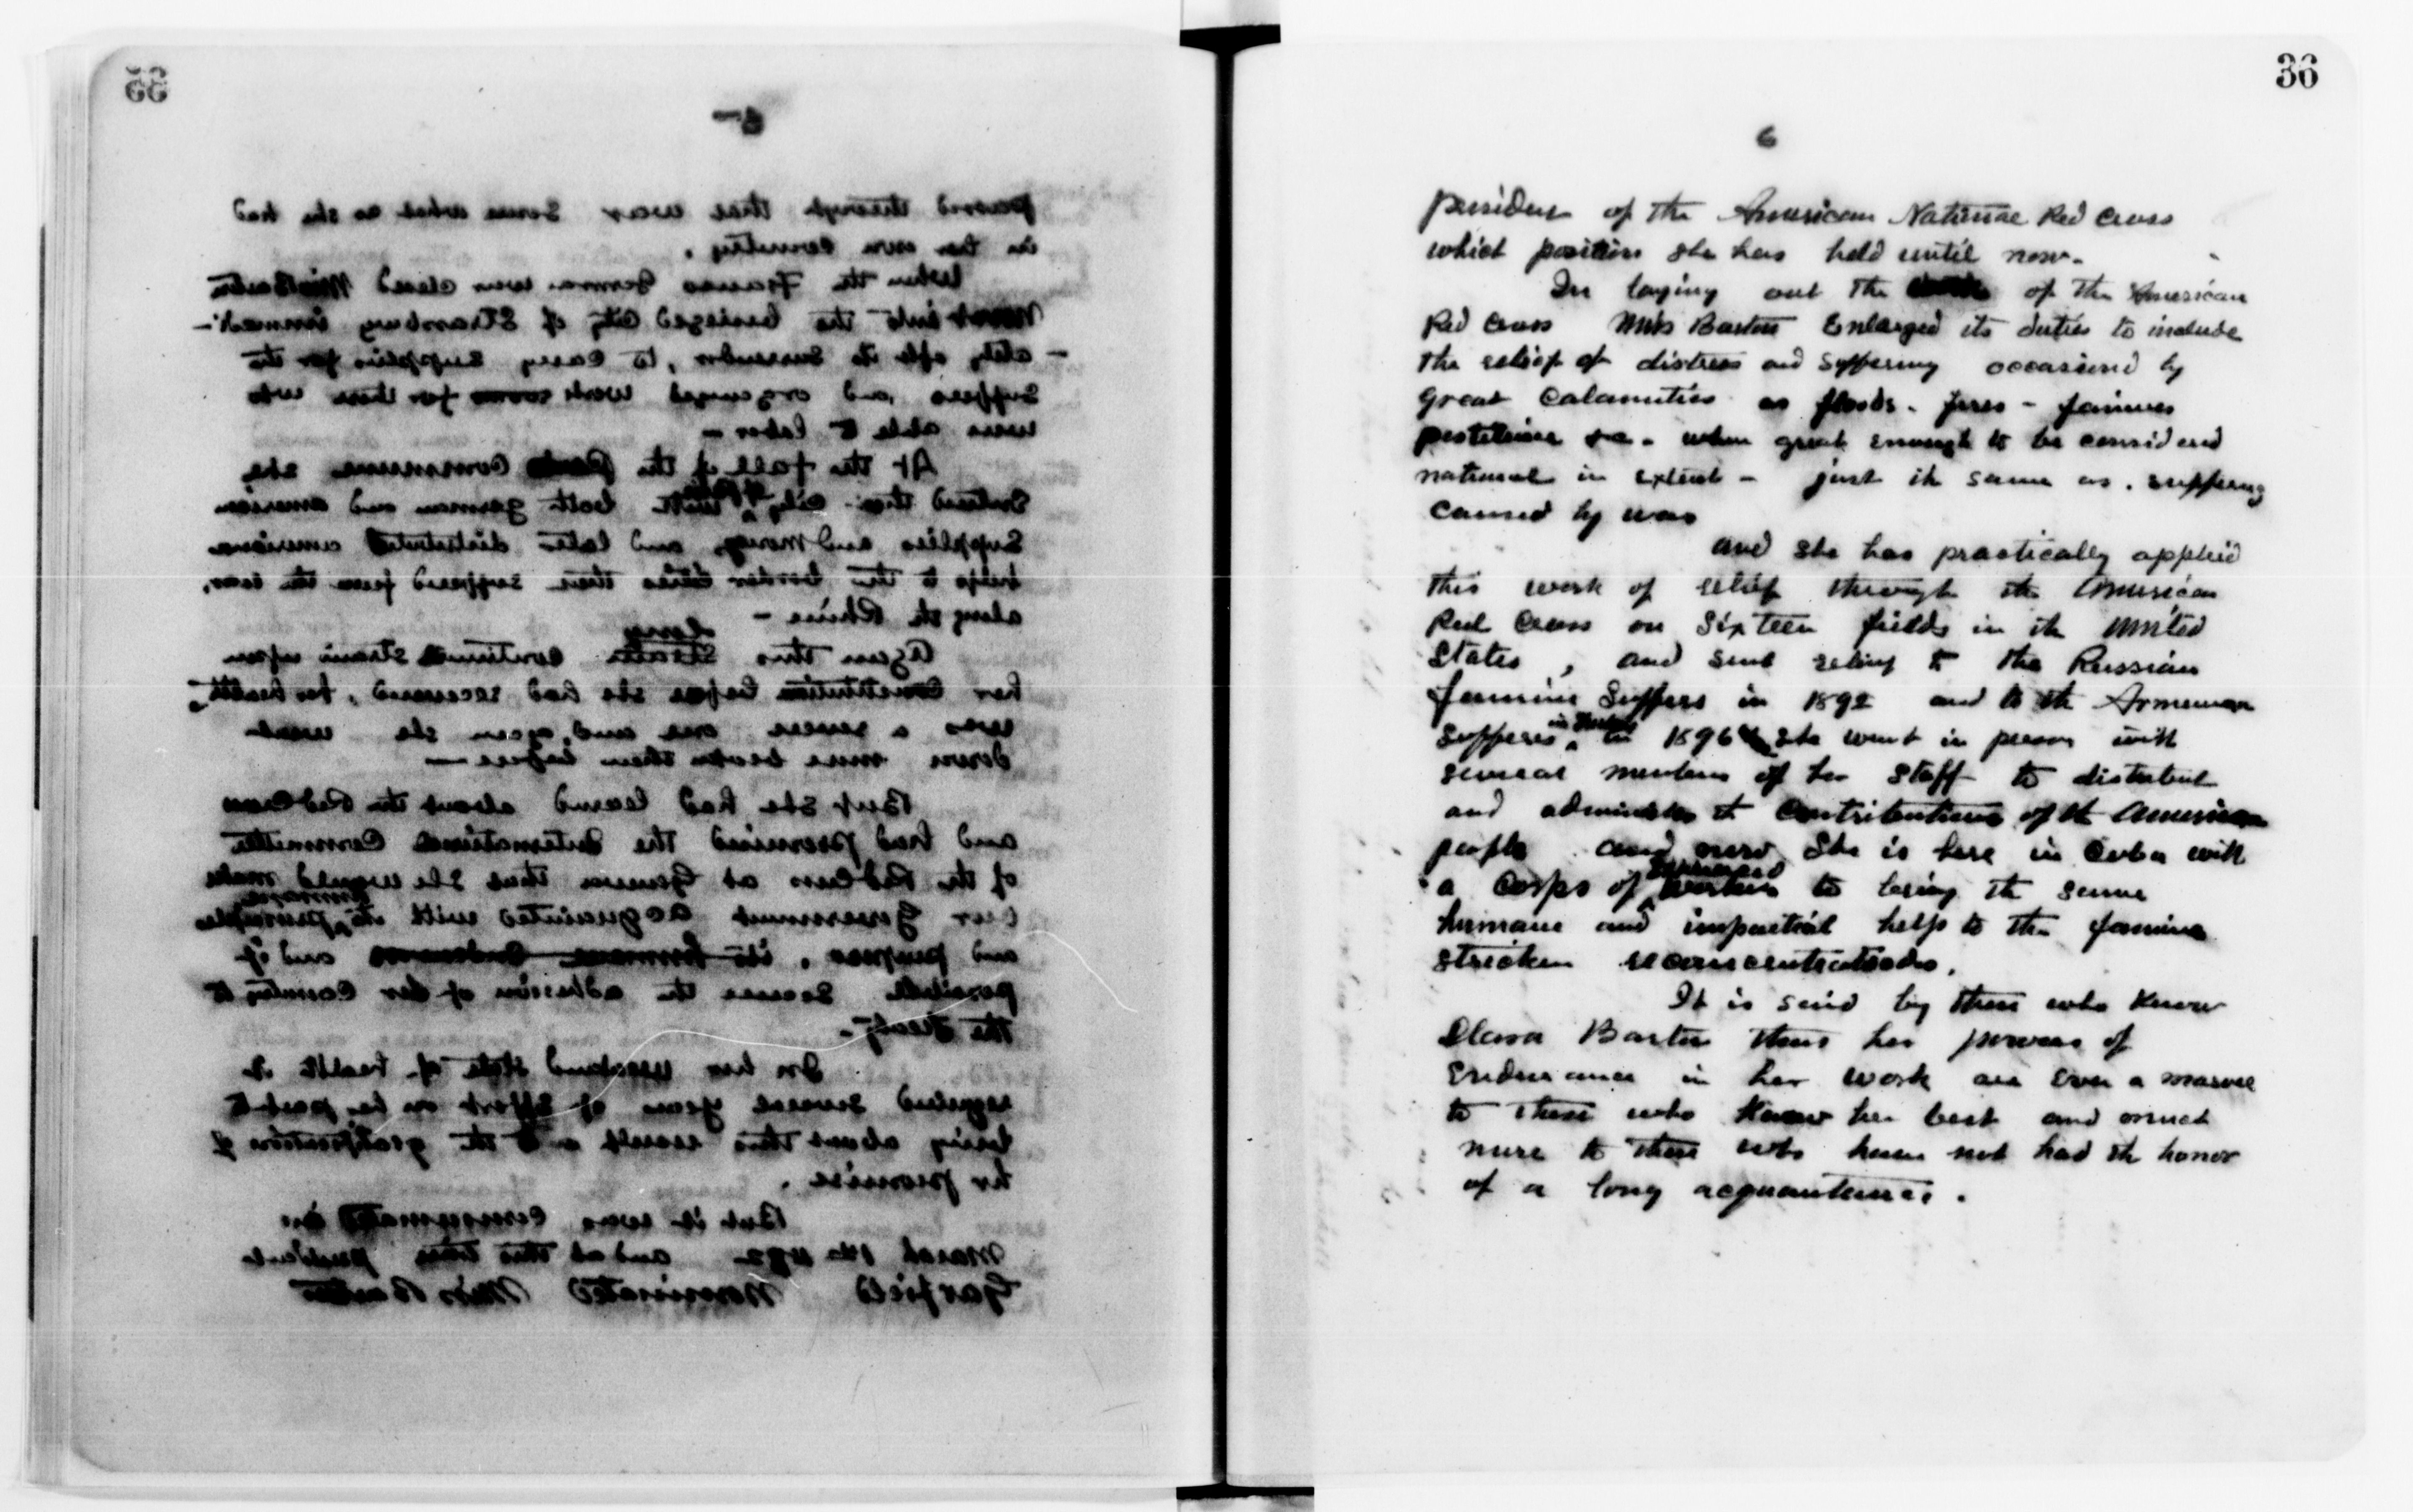 35
5-
passed through that war some what as she had
in her own country.
When the Franco German war closed Miss Barton
went into the besieged city of Strassburg immedi-
-ately after its surrender, to carry supplies for the
suffers and organized work rooms for those who
were able to labor -
At the fall of the Commune she
entered that city of Paris with both german and american
supplies and money, and later distributed american
help to the border cities that suffered from the war,
along the Rhine -
Again this long continued strain upon
her constitution before she had recovered, her health,
was a severe one and again she went
down more broken than before -
But she had learned about the Red Cross
and had promised the International Committee
of the Red Cross at Geneva that she would make
our Government acquainted with its humane principles
and purposes, and if
possible secure the adhesion of her country to
the Treaty -
In her weakened state of health it
required several years of effort on her part to
bring about this result and the gratification of
her promise.
But it was consummated in
March 1st 1882 and at this time president
Garfield nominated Miss Barton
36
6
president of the American National Red Cross
which position she has held until now -
In laying out the work of the American
Red Cross Miss Barton Enlarged its duties to include
the relief of distress and suffering occasioned by
great Calamities as floods - fires - famines
pestilence &c - when great enough to be considered
national in extent - just the same as suffering
caused by war
and she has practically applied
this work of relief through the American
Red Cross on Sixteen fields in the United
States, and sent relief to the Russian
famine suffers in 1892 and to the Armenian
sufferers in Turkey in 1896 she went in person with
several members of her Staff to distribute
and administer the contributions of the American
people and now She is here in Cuba with
a Corps of experienced workers to bring the same
humane and impartial help to the famine
stricken reconcentrados.
It is said by those who know
Clara Barton that her powers of
endurance in her work are ever a marvel
to those who know her best and much
more to those who have not had the honor
of a long acquaintance.